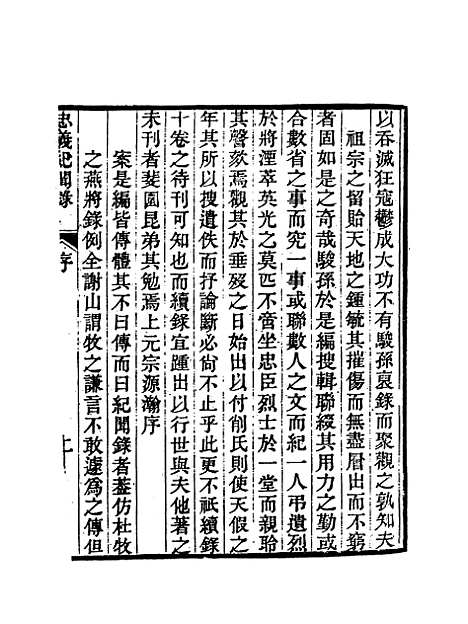 以吞滅狂寇鬱成大功不有駿孫裒錄而聚觀之孰知夫
祖宗之留貽天地之鍾毓其摧傷而無盡層出而不窮
者固如是之奇哉駿孫於是編搜輯聯綴其用力之勤或
合數省之事而究一事或聯數人之文而紀一人弔遺烈
於將湮萃英光之莫匹不啻坐忠臣烈士於一堂而親聆
其謦欬焉觀其於垂歿之日始出以付削氏則使天假之
年其所以搜遺佚而抒論斷必尙不止乎此更不祇續錄
十卷之待刊可知也而續錄宜踵出以行世與夫他著之
未刊者斐園昆弟其勉焉上元宗源瀚序
案是編皆傳體其不曰傳而曰紀聞錄者葢仿杜牧
之燕將錄例全謝山謂牧之謙言不敢遽為之傳但
忠義紀聞錄
序
上